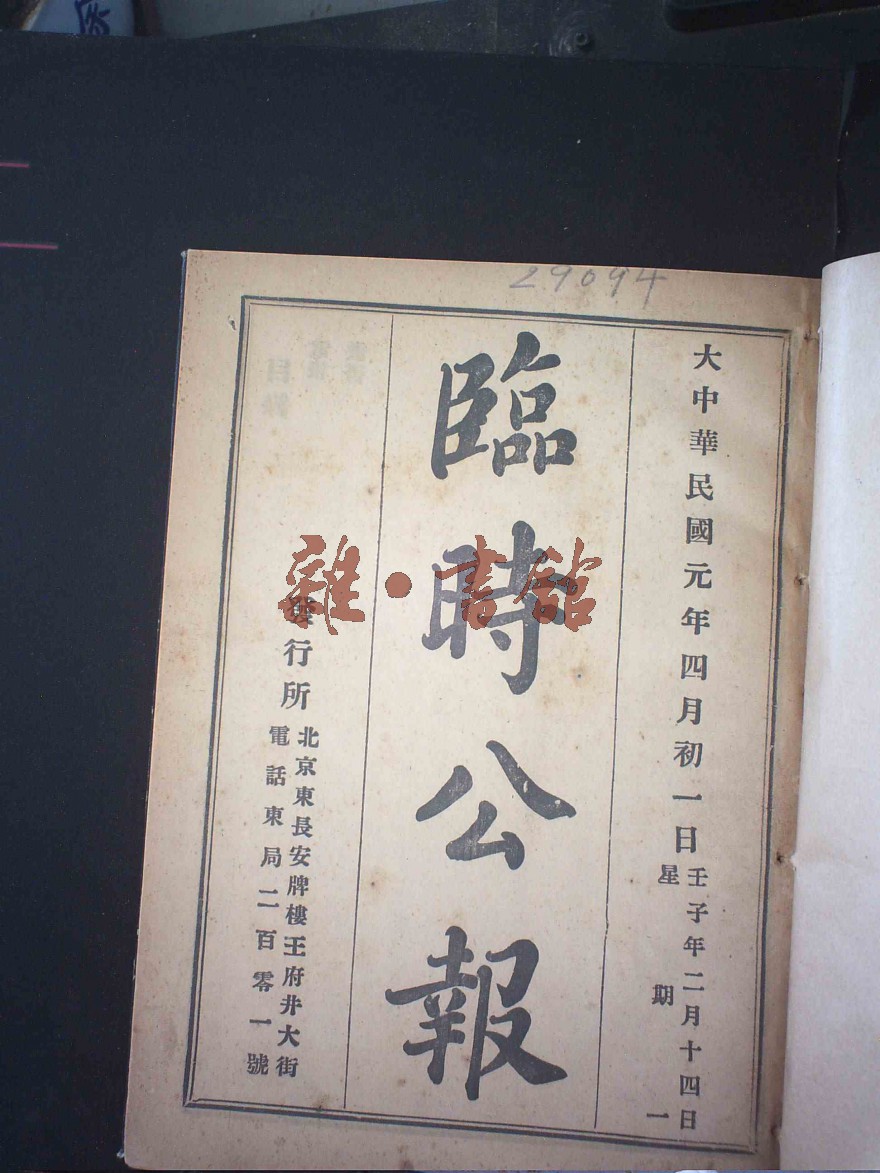 29094
大中華民國元年四月初一日
壬子年二月十四日
星期一
臨時公報
發行所
北京東長安牌樓王府井大街
電話東局二百零一號
雜·書館